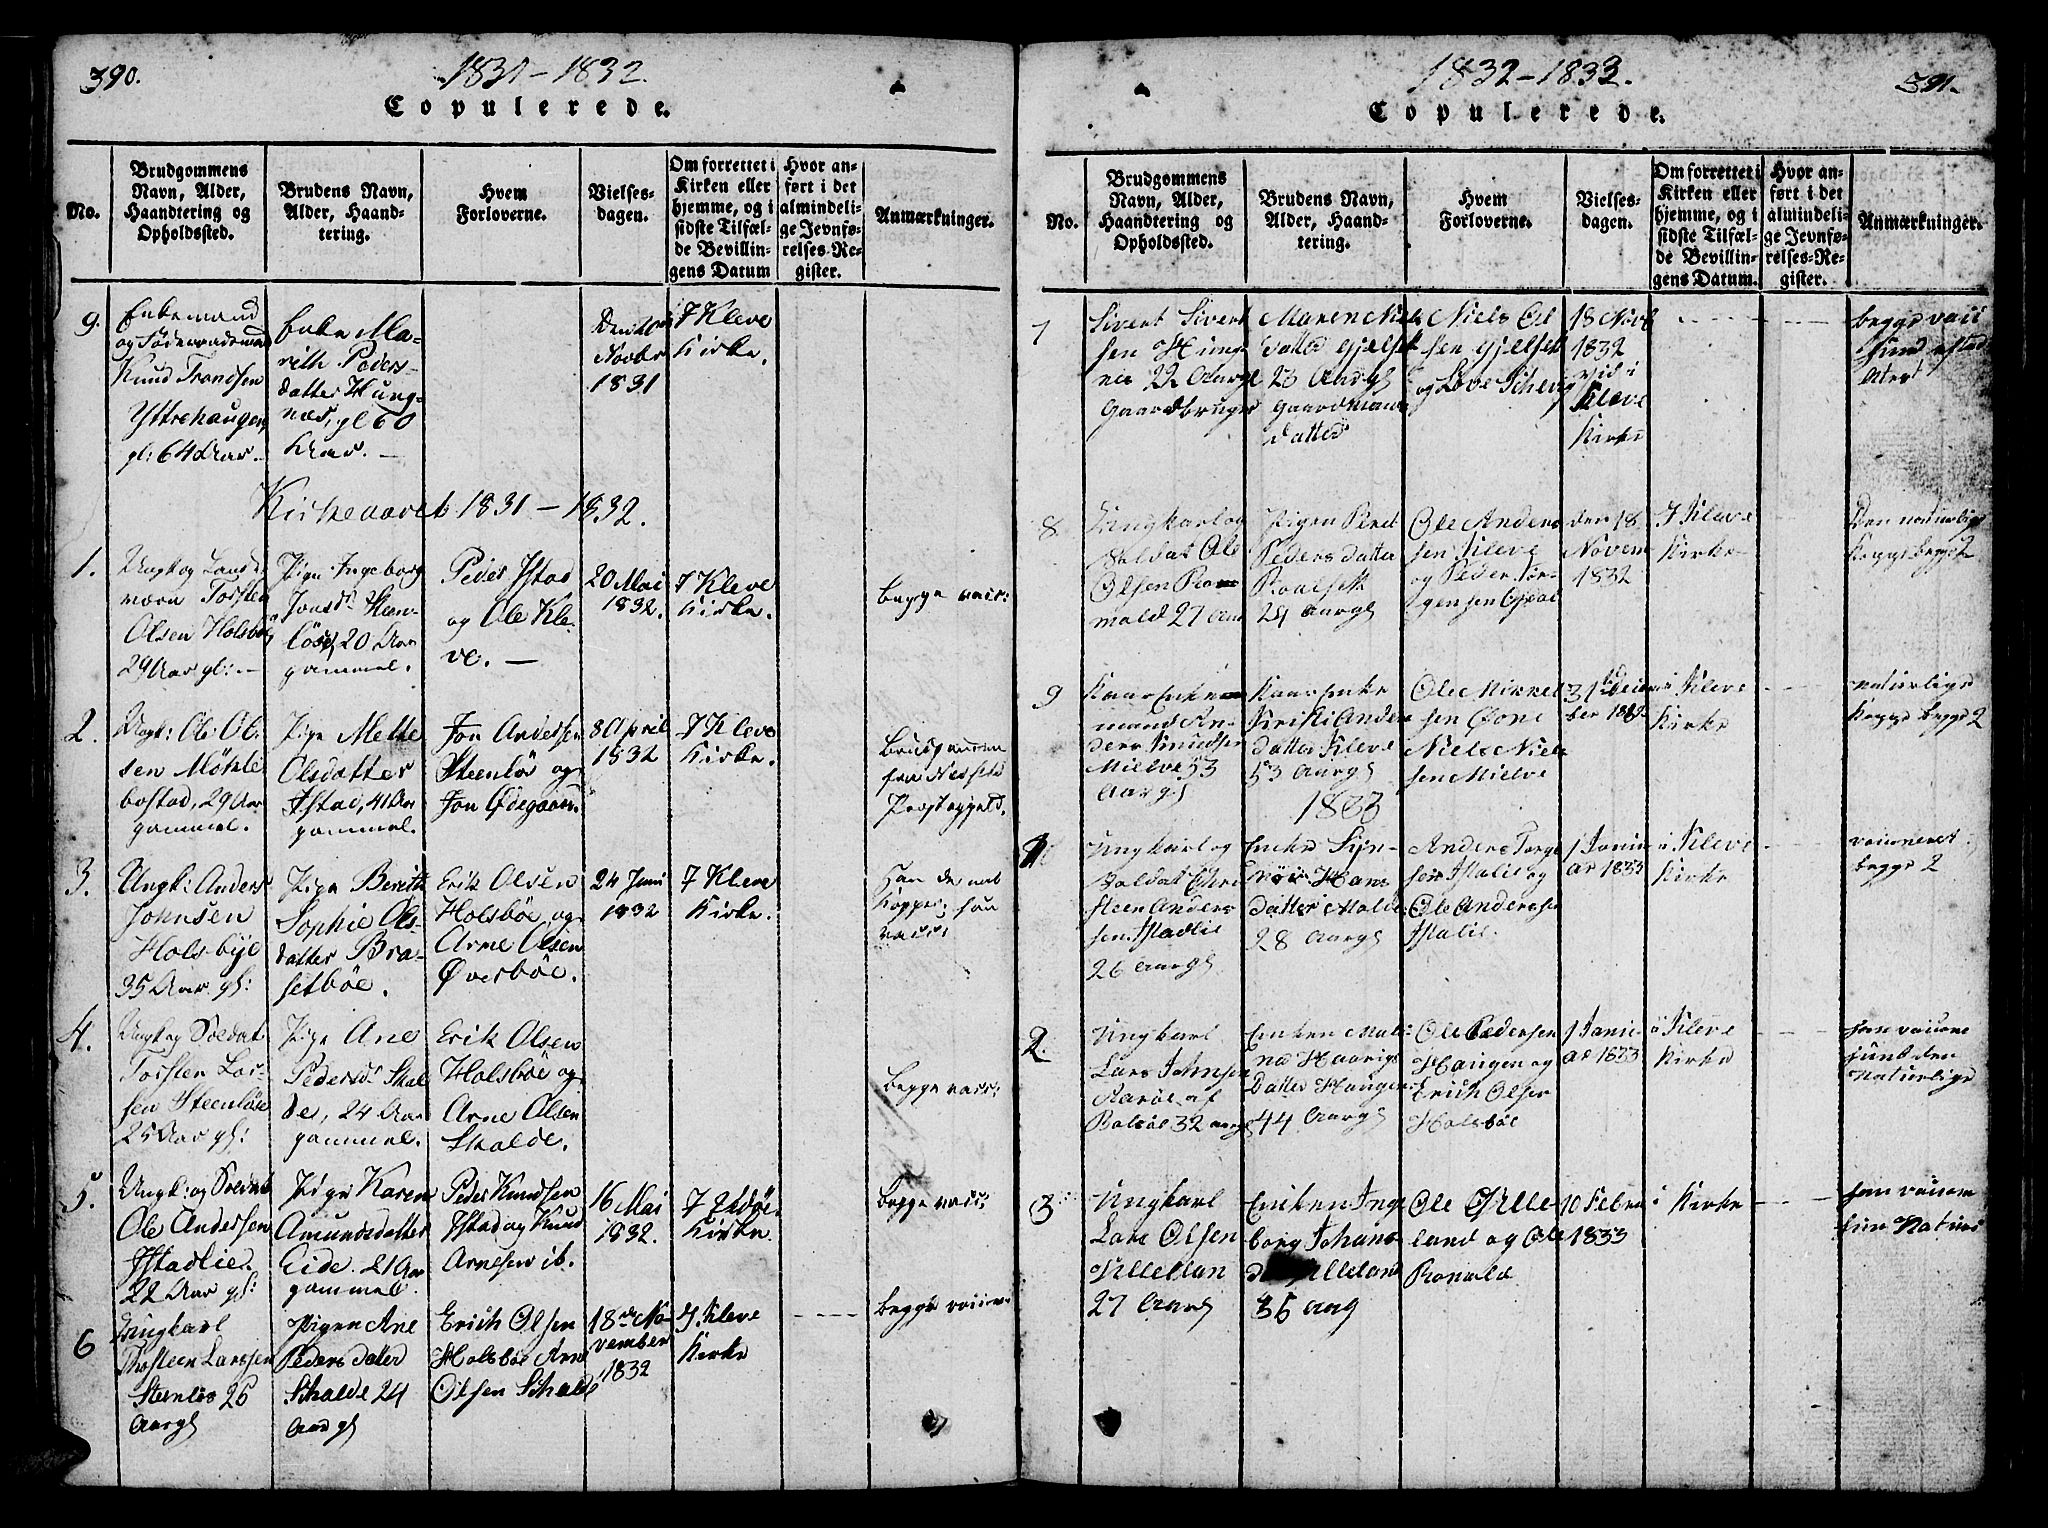 390.
1831-1832.
Copulerede.
No.
Brudgommens Navn, Alder, Haandtering og Opholdssted.
Brudens Navn, Alder, Haandtering.
Hvem Forloverne.
Vielses-dagen.
Om forrettet i Kirken eller hjemme, og i sidste Tilfælde Bevillingens Datum
Hvor anført i det almindelige Jevnførelses-Register.
Anmærkninger.
9.
Enkemand
og
Knud Trondsen
Yttrehaugen,
gl: 64 Aar.
Enke Ma-
rith Peders-
datter Hung-
næs, gl 60
Aar. —
Den
Novbr
1831
I Kleve
Kirke.
Kirkeaaret 1831 — 1832.
1.
Ungk og Land
værn Torsten
Olsen Holsbøe,
29 Aar gl: —
Pige Ingeborg
Jonsdr Steen-
løse, 20 Aar
gammel.
Peder Istad
og Ole Kle-
ve. —
20 Mai
1832.
I Kleve
Kirke.
Begge vacc:
2.
Ungk: Ole Ol-
sen Möhle
bostad, 29 Aar
gammel.
Pige Mette
Olsdatter
Istad, 41 Aar
gammel.
Jon Andersen
Steenløs og
Jon Ødegaard.
8 April
1832
I Kleve
Kirke.
fra Nesset
Præstegjeld.
3.
Ungk: Anders
Johnsen
Holsbye
35 Aar gl:
Pige Berith
Sophie Ols-
datter Bra-
setbøe.
Erik Olsen
Holsbøe og
Arne Olsen
Øverbøe.
24 Juni
1832
I Kleve
Kirke.
Han de nat
Kopper; hun
vacc:
4.
Ungk og Soldat
Torsten Lar-
sen Steenløse
25 Aar gl:
Pige Ane
Pedersdr Skal
de, 24 Aar
gammel.
Erik Olsen
Holsbøe og
Arne Olsen
Skalde.
Begge vacc:
5.
Ungk: og Soldat
Ole Andersen
Istadlie.
22 Aar gl:
Pige Karen
Amundsdatter
Eide. 21 Aar
gammel.
Peder Knudsen
Istad og Knud
Arnesen ib.
16 Mai
1832.
I
Kirke.
Begge vacc:
6
Ungkarl
Thosteen Larssen
Stenløs 25
Aar gl
Pigen Ane
Peders datter
Skalde 24
Aar gl
Erich Olsen
Holsbøe Arne
Olsen Skalde
18de No-
vember
1832
I Kleve
Kirke
Begge
1832-1833.
391.
Copulerede.
No.
Brudgommens Navn, Alder, Haandtering og Opholdssted.
Brudens Navn, Alder, Haandtering.
Hvem Forloverne.
Vielses-dagen.
Om forrettet i Kirken eller hjemme, og i sidste Tilfælde Bevillingens Datum.
Hvor anført i det almindelige Jevnførelses-Register.
Anmærkninger.
7
Sivert Sivert
sen Hung-
nes 22 Aar gl
Gaardbruger
Maren Niels
datter Gjelset
23 Aar gl
Gaardmands
datter
Niels Ol
sen Gjelset
og
18 Novb
1832
vid i
Kleve
Kirke
8
Ungkarl og
Soldat Ole
Olsen Ro
mald 27 aar
Pigen Beret
Peders datter
Roalset
24 Aar gl
Ole Anders
sen Kleve
og Peder Jør-
gensen
den 18
Novem
1832
I Kleve
Kirke
Den naturlige
Kopper begge 2
9
mand An-
ders Knudsen
Mielve 53
Aar gl
datter Kleve
53 Aar gl
Ole Mikkel
sen
Niels Niel
sen Mielve
i Kleve
Kirke
naturlige
Kopper begge 2
1833
1
Ungkarl og
Soldat
steen Anders
sen Istadlie
26 Aar gl
Enke
Hans
datter Molde
28 Aar gl
Anders
Istalie og
Ole Anderssen
Istalie.
1 Janu
ar 1833
i Kleve
Kirke
vaccineret
begge 2
2.
Ungkarl
Lars Johnsen
Aarøe af
Bolsøe 32 aar gl
datter Haugen
44 Aar gl
Ole Pedersen
Haugen og
Erich Olsen
Holsbøe
1 Janu-
ar 1833
i Kleve
Kirke
naturlige
3
Ungkarl
Lars Olsen
Ulleland
27 Aar gl
Enken Inge
borg Johans
Ulleland
36 Aar gl
Ole Ulle
land og Ole
Romald
10 Febru
1833
i Kirke